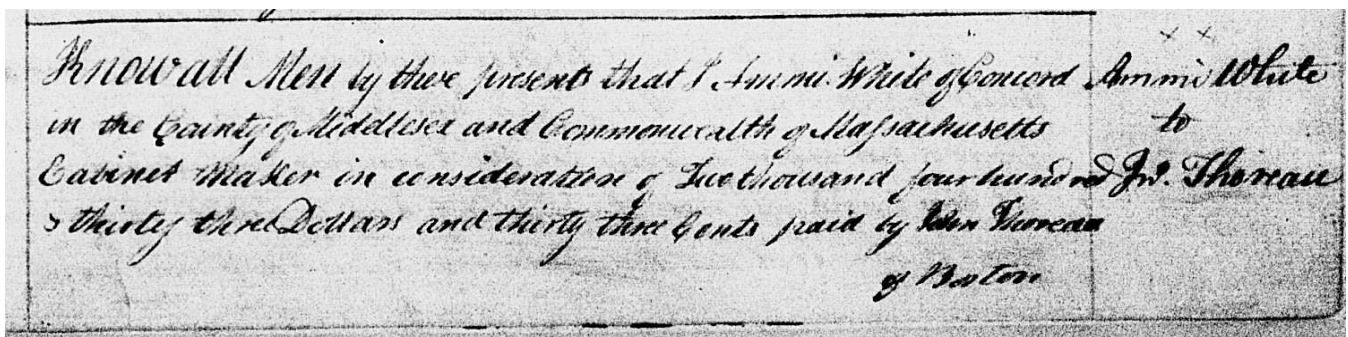 Know all Men by these presents that I Ammi White of Concord
in the County of Middlesex and Commonwealth of Massachusetts
Cabinet Maker in consideration of Two thousand four hundred
& thirty three Dollars and thirty three Cents paid by John Thoreau
of Boston
Ammi White
to
Jno. Thoreau